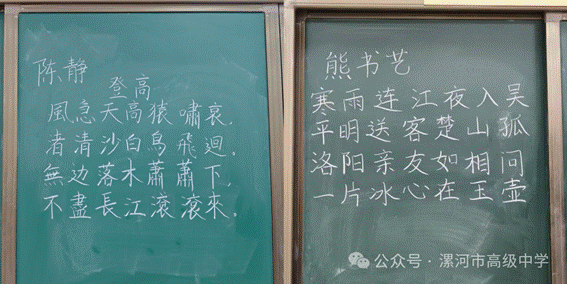 陈静
登高
風急天高猿嘯哀.
者清沙白鳥飛迴.
無边落木蕭蕭下.
不盡長江滾滾來.
熊书艺
寒雨连江夜入吴
平明送客楚山孤
洛阳亲友如相问
一片冰心在玉壶
公众号·漯河市高级中学